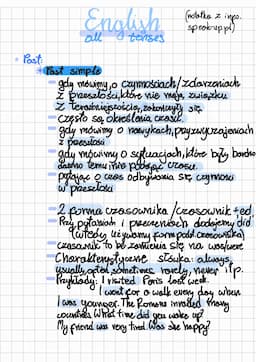 English
all tenses
(notatka z inpo.
speakup.pl)
Past:
Past simple
- gdy mówimy o czynnościach/zdarzeniach
z przeszłości, które nie mają związku
z teraźniejszością, zakończyły się
często są określenia czasu
- gdy mówimy o nawykach, przyzwyczajeniach
z przeszłości
- gdy mówimy o sytuacjach, które były bardzo
dawno temu i nie podając czasu
- pytając o czas odbywania się czynności
w przeszłości
- 2 forma czasownika / czasownik + ed
Przy pytaniach i przeczeniach dodajemy did
(wtedy używamy form podst. czasownika)
czasownik to be zamienia się na was/were
Charakterystyczne słówka: always,
usually, often, sometimes, rarely, never itp.
Przykłady: I visited Paris last week.
I went for a walk every day when
I was younger. The Romans invaded many
countries. What time did you wake up?
My friend was very tired. Was she happy?